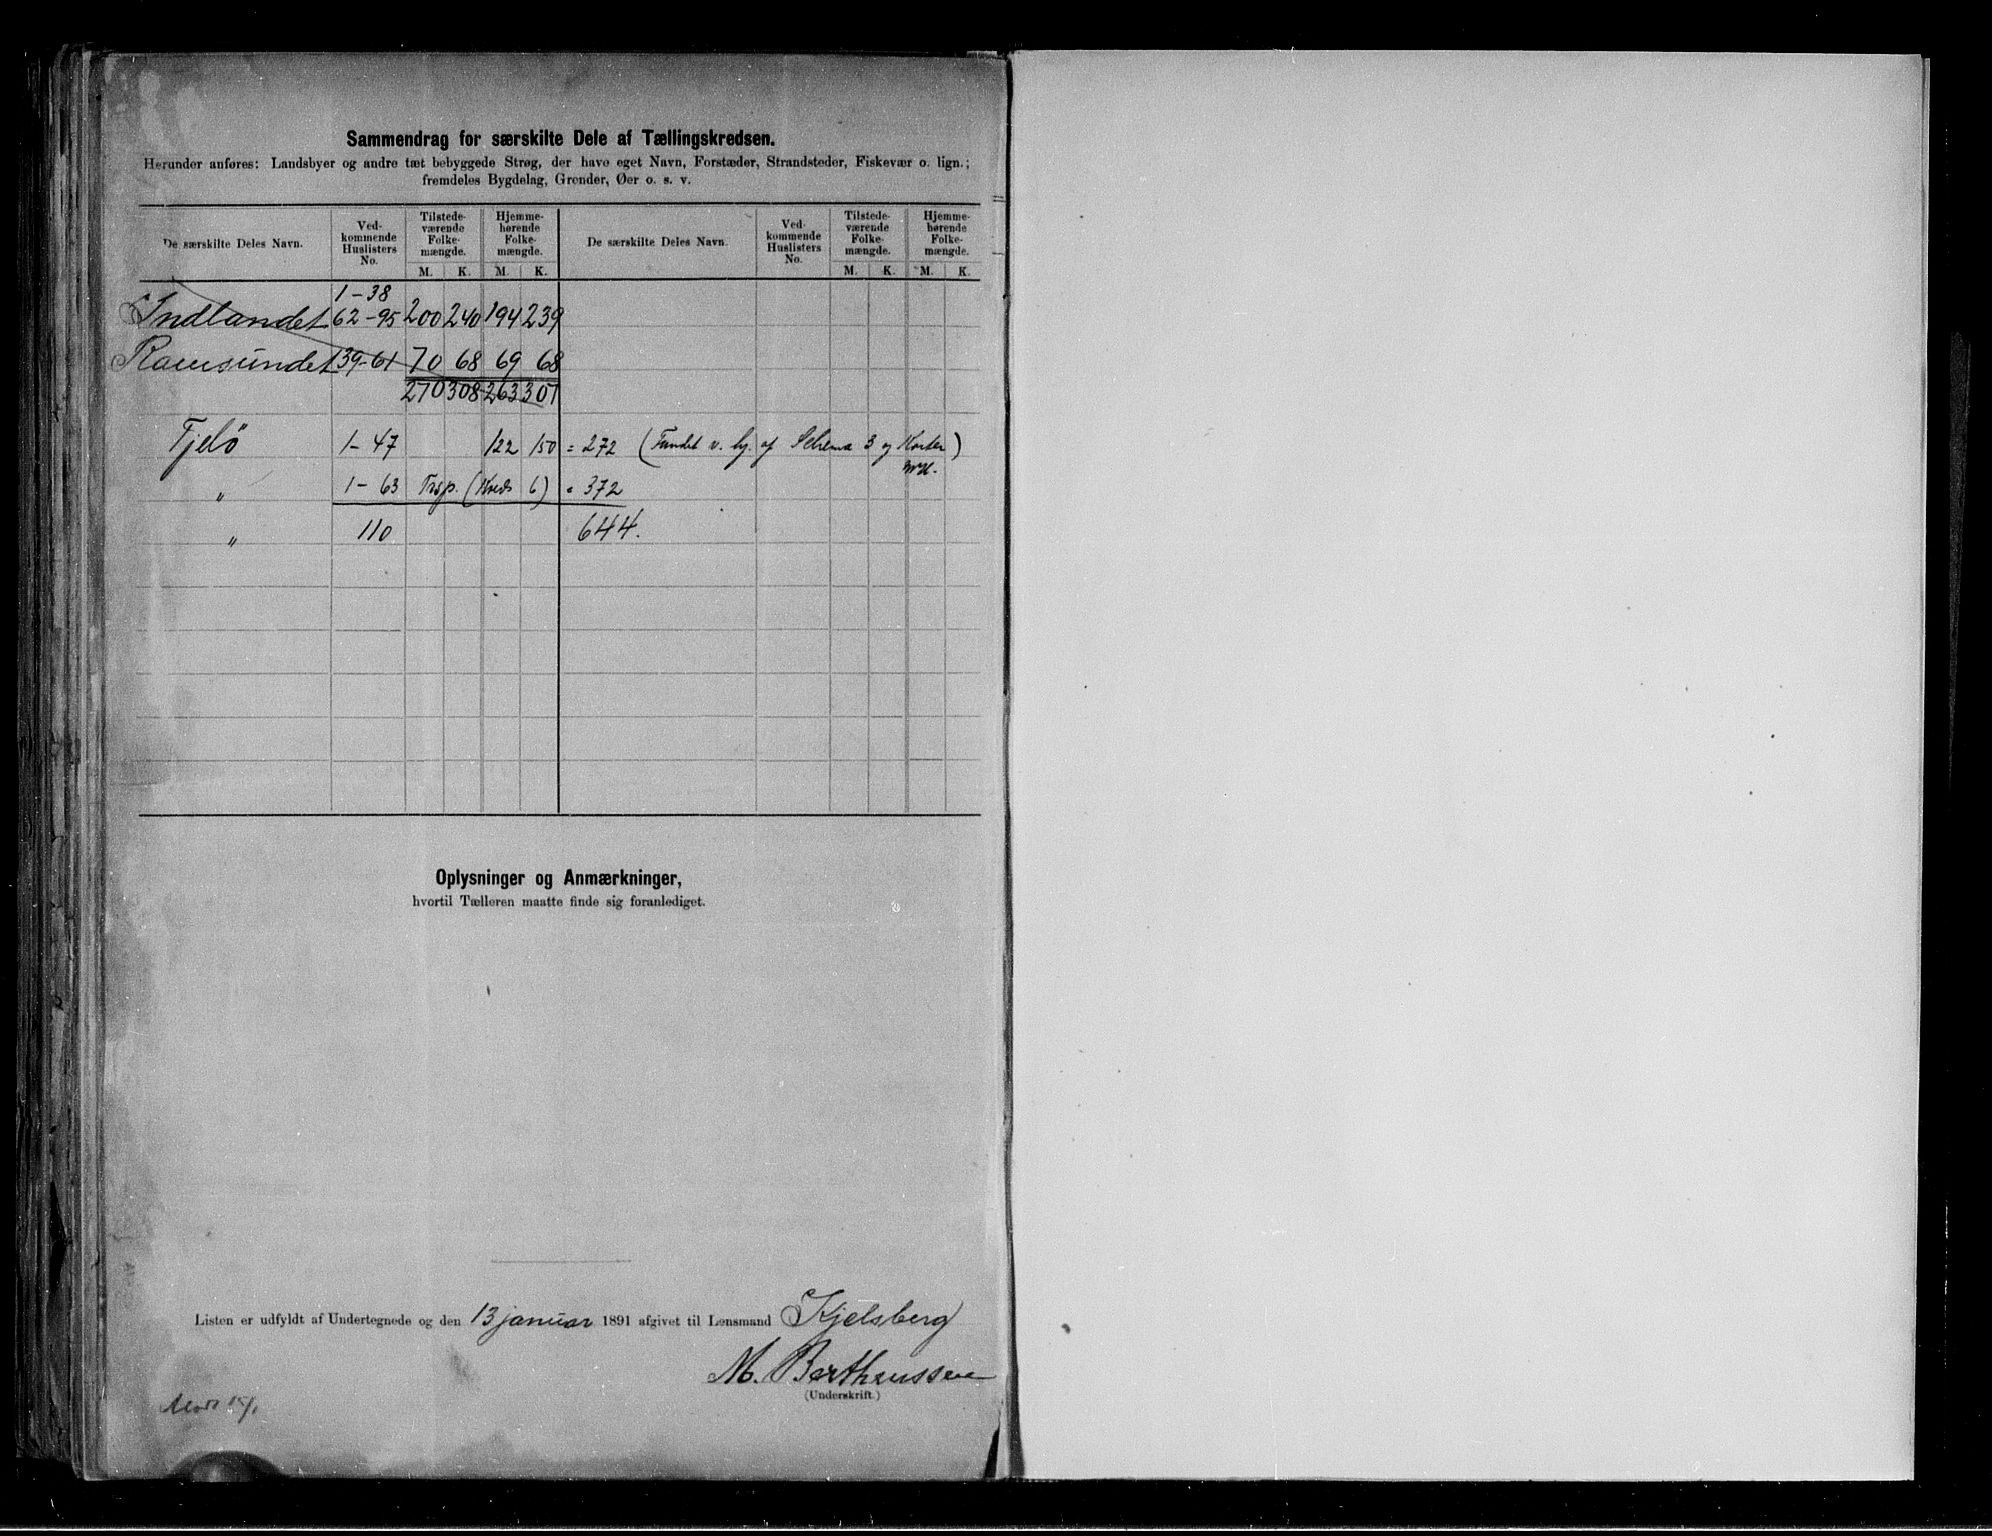 Sammendrag for særskilte Dele af Tællingskredsen.
Herunder anføres: Landsbyer og andre tæt bebyggede Strøg, der have eget Navn, Forstæder, Strandsteder, Fiskevær o. lign.;
fremdeles Bygdelag, Grender, Øer o. s. v.
De særskilte Deles Navn. Ved-kommende Huslisters No. Tilstede-værende Folke-mængde. Hjemme-hørende Folke-mængde. De særskilte Deles Navn. Ved-kommende Huslisters No. Tilstede-værende Folke-mængde. Hjemme-hørende Folke-mængde.
M. K. M. K. M. K. M. K.
1-38
Indlandet 62-95 200 240 194 239
Ramsundet 39-61 70 68 69 68
270 308 263 307
Tjelö 1-47 122 150 = 272 (Fundet v. hj. af Schema 3 og Korter)
" 1-63 Trsp. (Kreds 6) = 372
" 110 644.
Oplysninger og Anmærkninger,
hvortil Tælleren maatte finde sig foranlediget.
Listen er udfyldt af Undertegnede og den 13 januar 1891 afgivet til Lensmand Kjelsberg
M. Bertheussen
(Underskrift.)